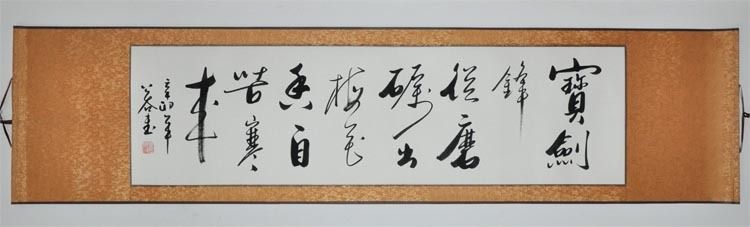 寶劍
鋒
從磨
礪出
梅花
香自
苦寒
來
辛卯年